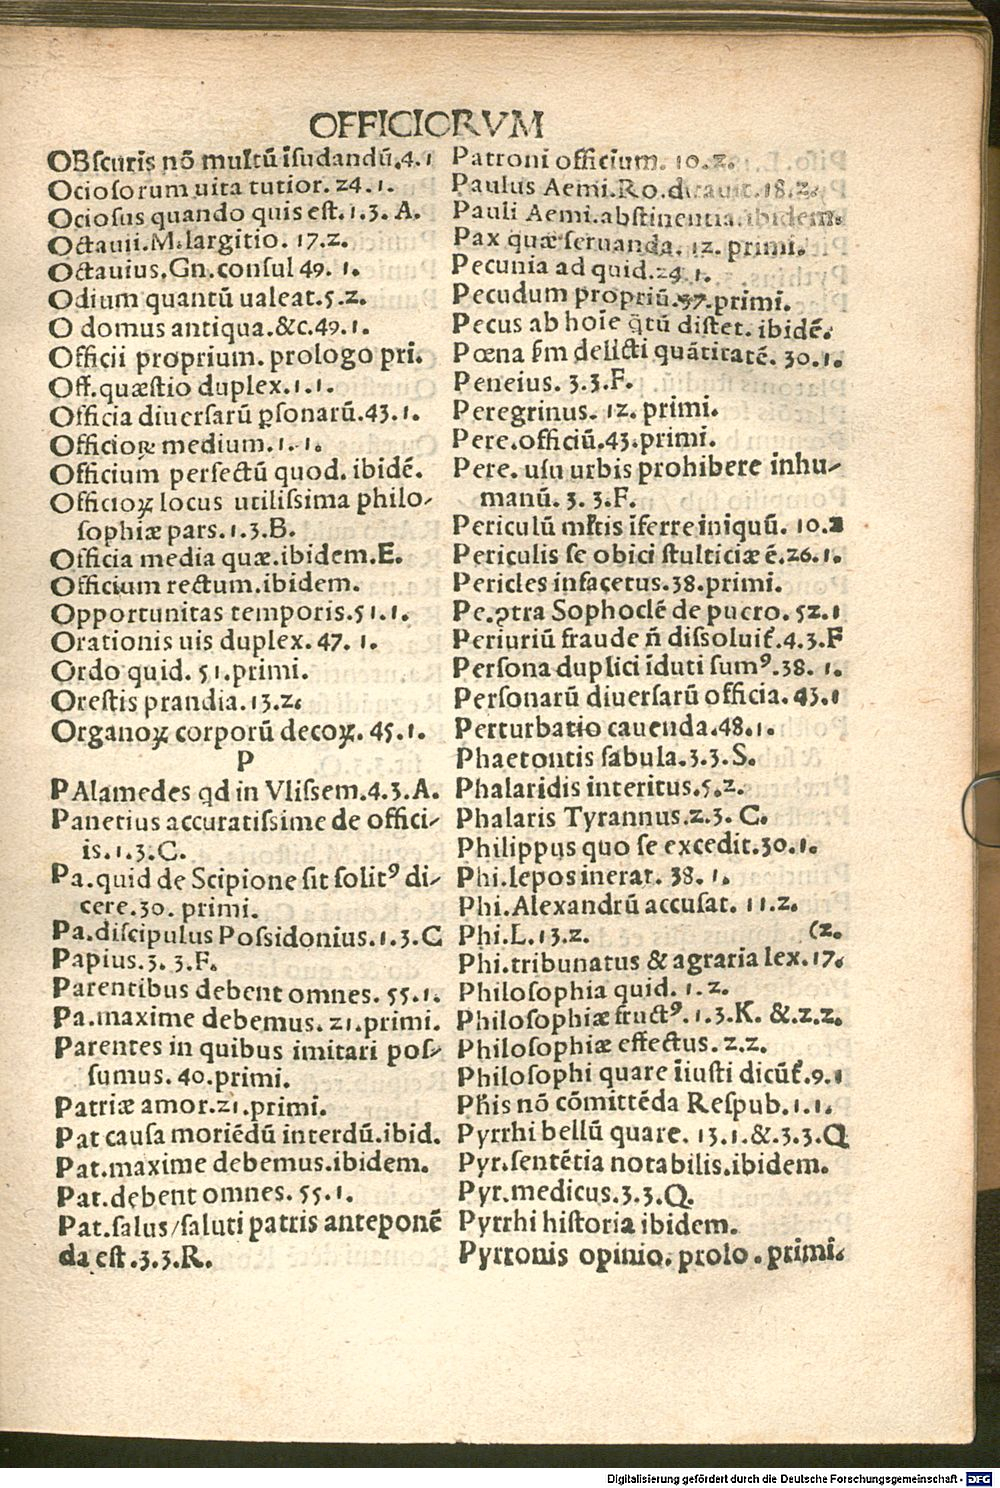 OFFICIORVM
OBscuris nõ multũ ĩsudandũ.4.1
Ociosorum uita tutior. 24. 1.
Ociosus quando quis est. 1.3. A.
Octauii.M.largitio. 17.2.
Octauius.Gn.consul 49. 1.
Odium quantũ ualeat.5.2.
O domus antiqua.&c.49.1.
Officii proprium. prologo pri.
Off.quæstio duplex.1.1.
Officia diuersarũ ꝑsonarũ.43.1.
Officioꝝ medium.1.1.
Officium perfectũ quod. ibidẽ.
Officioꝝ locus utilissima philo-
sophiæ pars.1.3.B.
Officia media quæ.ibidem.E.
Officium rectum.ibidem.
Opportunitas temporis.51.1.
Orationis uis duplex. 47. 1.
Ordo quid. 51.primi.
Orestis prandia.13.2.
Organoꝝ corporũ decoꝝ. 45.1.
P
PAlamedes qd in Vlissem.4.3.A.
Panetius accuratissime de offici-
is.1.3.C.
Pa.quid de Scipione sit solitꝰ di-
cere.30. primi.
Pa.discipulus Possidonius.1.3.C
Papius.3. 3.F.
Parentibus debent omnes. 55.1.
Pa.maxime debemus. 21.primi.
Parentes in quibus imitari pos-
sumus. 40.primi.
Patriæ amor.21.primi.
Pat causa moriẽdũ interdũ.ibid.
Pat.maxime debemus.ibidem.
Pat.debent omnes. 55.1.
Pat.salus/saluti patris anteponẽ
da est.3.3.R.
Patroni officium. 10.2.
Paulus Aemi.Ro.ditauit.18.2.
Pauli Aemi.abstinentia.ibidem.
Pax quæ seruanda. 12. primi.
Pecunia ad quid.24.1.
Pecudum propriũ.37.primi.
Pecus ab hoie q̃tũ distet. ibidẽ.
Pœna ẜm delicti quãtitatẽ. 30.1.
Peneius. 3.3.F.
Peregrinus. 12. primi.
Pere.officiũ.43.primi.
Pere. usu urbis prohibere inhu-
manũ. 3. 3.F.
Periculũ mĺtis ĩferre iniquũ. 10.2
Periculis se obici stulticiæ ẽ.26.1.
Pericles infacetus.38.primi.
Pe.ꝯtra Sophoclẽ de puero. 52.1
Periuriũ fraude ñ dissoluit̃.4.3.F
Persona duplici ĩduti sumꝰ.38. 1.
Personarũ diuersarũ officia. 43.1
Perturbatio cauenda.48.1.
Phaetontis fabula.3.3.S.
Phalaridis interitus.5.2.
Phalaris Tyrannus.2.3. C.
Philippus quo se excedit.30.1.
Phi.lepos inerat. 38. 1.
Phi.Alexandrũ accusat. 11.2.
Phi.L.13.2. (2.
Phi.tribunatus & agraria lex.17.
Philosophia quid. 1. 2.
Philosophiæ fructꝰ. 1.3.K. &.2.2.
Philosophiæ effectus. 2.2.
Philosophi quare ĩiusti dicũt̃.9.1
Phis nõ cõmittẽda Respub.1.1.
Pyrrhi bellũ quare. 13.1.&.3.3.Q
Pyr.sentẽtia notabilis.ibidem.
Pyr.medicus.3.3.Q.
Pyrrhi historia ibidem.
Pyrronis opinio. prolo . primi.
Digitalisierung gefördert durch die Deutsche Forschungsgemeinschaft - DFG